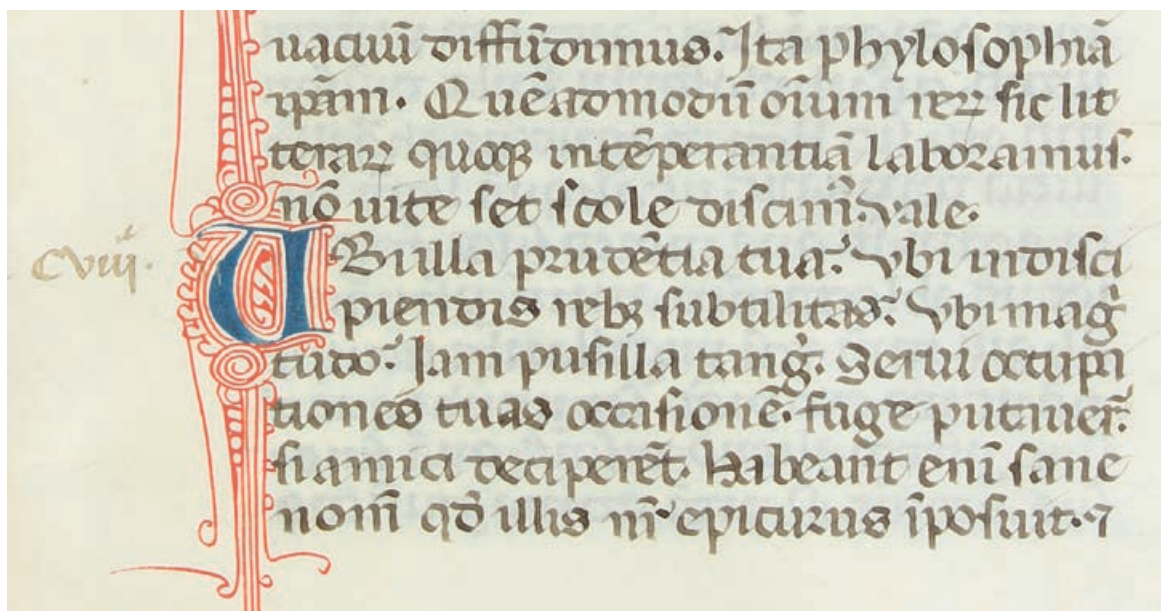 uacuū diffūdimus. Ita phylosophiā
ip̄am. Quēadmodū oīum rerꝝ sic lit
terarꝝ quoqꝫ intēperantiā laboramus.
nō uite set scole discim᷒. vale.
Cviii.
UBi illa prudētia tua? vbi in disci
piendis rebꝫ subtilitas? vbi mag̃
tudo? Iam pusilla tang̃. Serui occupa
tiones tuas occasionē. fuge putauer̃.
si amici deciperēt. Habeant enī sane
nom̄ qd̓ illis nr̄ epicurus īposuit. ⁊